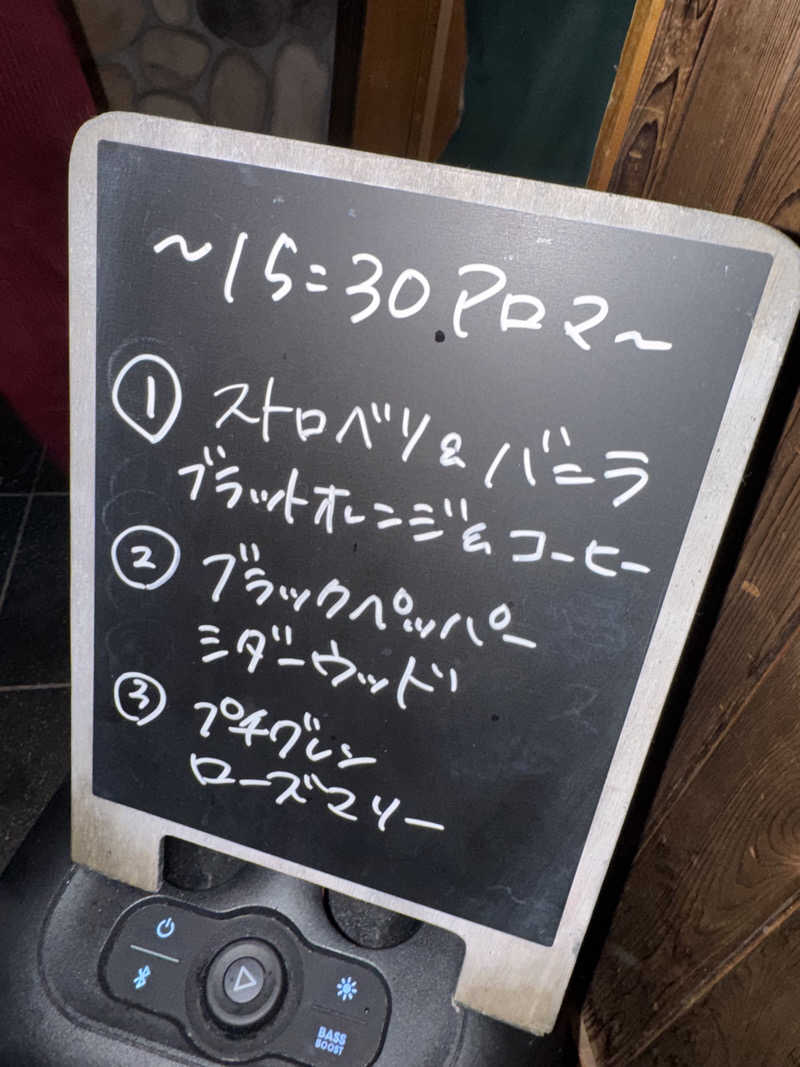 ～15:30アロマ～
① ストロベリ& バニラ
ブラットオレンジ&コーヒー
② ブラックペッパー
ミダーウッド
③ プチグレン
ローズマリー
BASS
BOOST